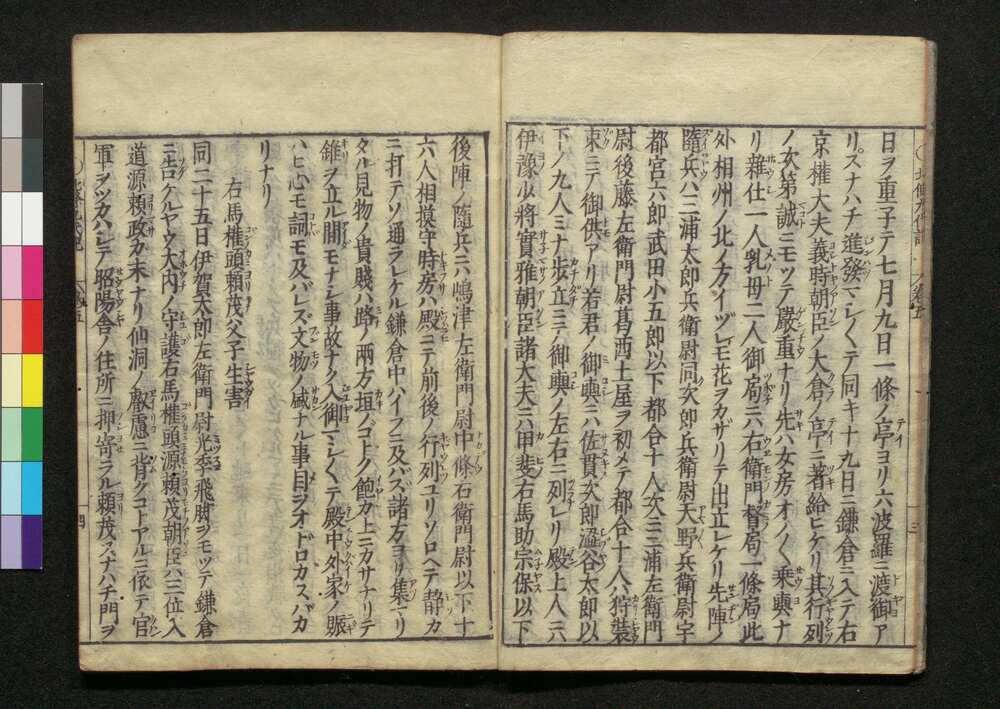 日ヲ重子テ七月九日一條ノ亭ヨリ六波羅ニ渡御ア
リスナハチ進發マシ〱テ同キ十九日ニ鎌倉ニ入テ右
京權大夫義時朝臣ノ大倉ノ亭ニ著給ヒケリ其行列
ノ次第誠ニモツテ嚴重ナリ先ハ女房オノ〱乗輿ナ
リ雜仕一人乳母二人御局ニハ右衛門督局一條局此
外相州ノ北ノ方イヅレモ花ヲカザリテ出立レケリ先陣ノ
隨兵ハ三浦太郎兵衛尉同次郎兵衛尉天野兵衛尉宇
都宮六郎武田小五郎以下都合十人次ニ三浦左衛門
尉後藤左衛門尉葛西土屋ヲ初メテ都合十人ハ狩裝
束ニテ御供アリ若君ノ御輿ニハ佐貫次郎澁谷太郎以
下ノ九人ミナ歩立ニテ御輿ノ左右ニ列レリ殿上人ニハ
伊豫少將實雅朝臣諸大夫ニハ甲斐右馬助宗保以下
後陣ノ隨兵ニハ嶋津左衛門尉中條右衛門尉以下十
六人相摸守時房ハ殿ニテ前後ノ行列ユリソロヘテ静カ
ニ打テソ通ラレケル鎌倉中ハイフニ及ハズ諸方ヨリ集マリ
タル見物ノ貴賤ハ路ノ兩方垣ノゴトク飽カ上ニカサナリテ
錐ヲ立ル間モナシ事故ナク入御マシ〱テ殿中外家ノ賑
ハヒ心モ詞モ及バレズ文物ノ盛ナル事目ヲオドロカスバカ
リナリ
右馬權頭頼茂父子生害
同二十五日伊賀太郎左衛門尉光季飛脚ヲモツテ鎌倉
ニ告ケルヤウ大内ノ守護右馬權頭源頼茂朝臣ハ三位入
道源頼政カ末ナリ仙洞ノ叡慮ニ背クコトアルニ依テ官
軍ヲツカハシテ昭陽舎ノ住所ニ押寄ラル頼茂スナハチ門ヲ